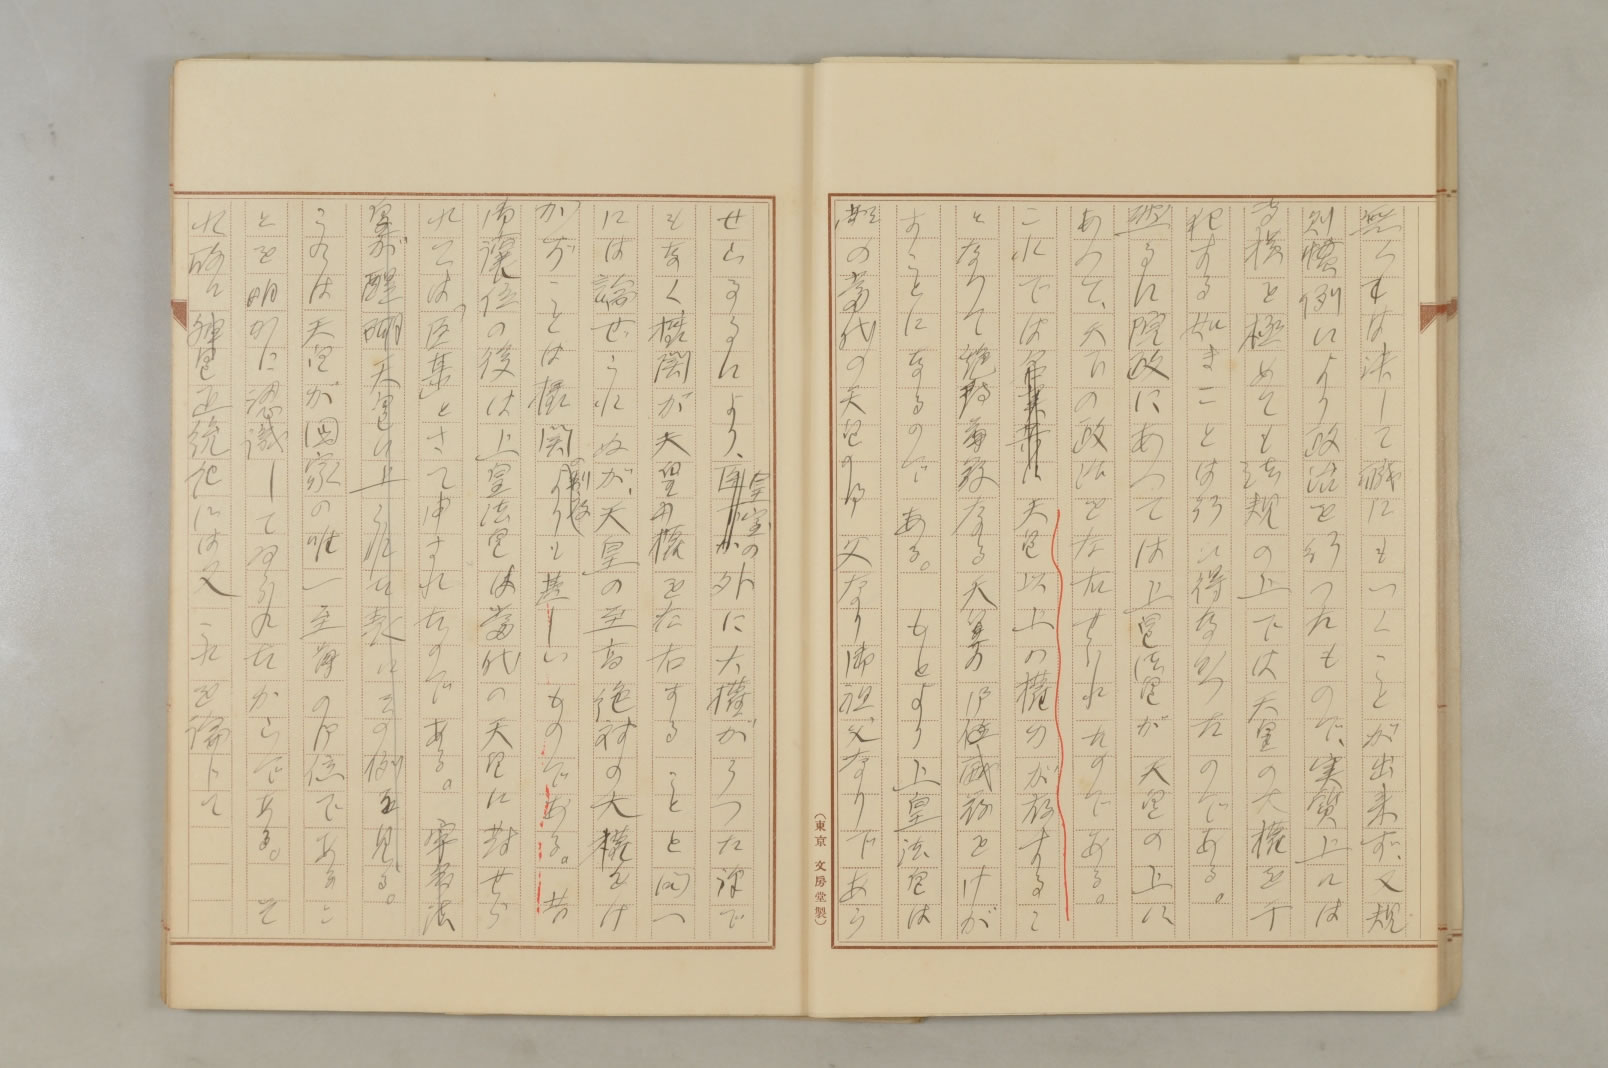 無くては決して職にもつくことが出来ず、又規
則慣例により政治を行つたもので、実質上には
専横を極めても法規の上では天皇の大権を干
犯する如きことは行ひ得なかつたのである。
然るに院政にあつては上皇法皇が天皇の上に
あつて、天下の政治を左右せられたのである。
これでは天皇以上の権力が存するこ
となりて絶対尊厳なる天皇の御稜威を けが
すことになるのである。もとより上皇法皇は
概の当代の天皇の御父なり御祖父なりであら
せらるるにより、皇室の外に大権がうつた訳で
もなく摂関が天皇の大権を左右することと同一
には論ぜられぬが、天皇の至高絶対の大権をけ
がすことは摂関政治よりも甚しいものである。昔
御譲位の後は上皇法皇は当代の天皇に対せら
れては、臣某とさへ申されたのである。宇多法
皇が醍醐天皇に上られた表にその例を見る。
これは天皇が国家の唯一至尊の御位であるこ
とを明かに認識してゐられたからである。そ
れ故に神皇正統記には又これを論じて
(東京 文房堂製)